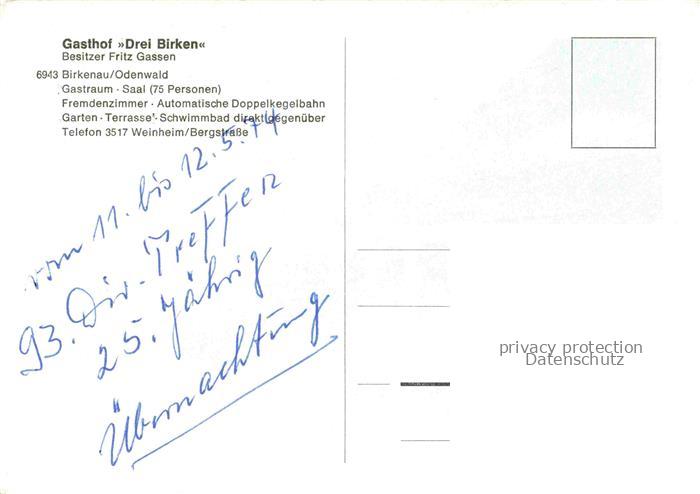 Gasthof »Drei Birken«
Besitzer Fritz Gassen
6943 Birkenau/Odenwald
Gastraum · Saal (75 Personen)
Fremdenzimmer · Automatische Doppelkegelbahn
Garten · Terrasse · Schwimmbad direkt gegenüber
Telefon 3517 Weinheim/Bergstraße
vom 11. bis 12.5.74
93. Div. Treffen
25. jährig
Übernachtung
privacy protection
Datenschutz